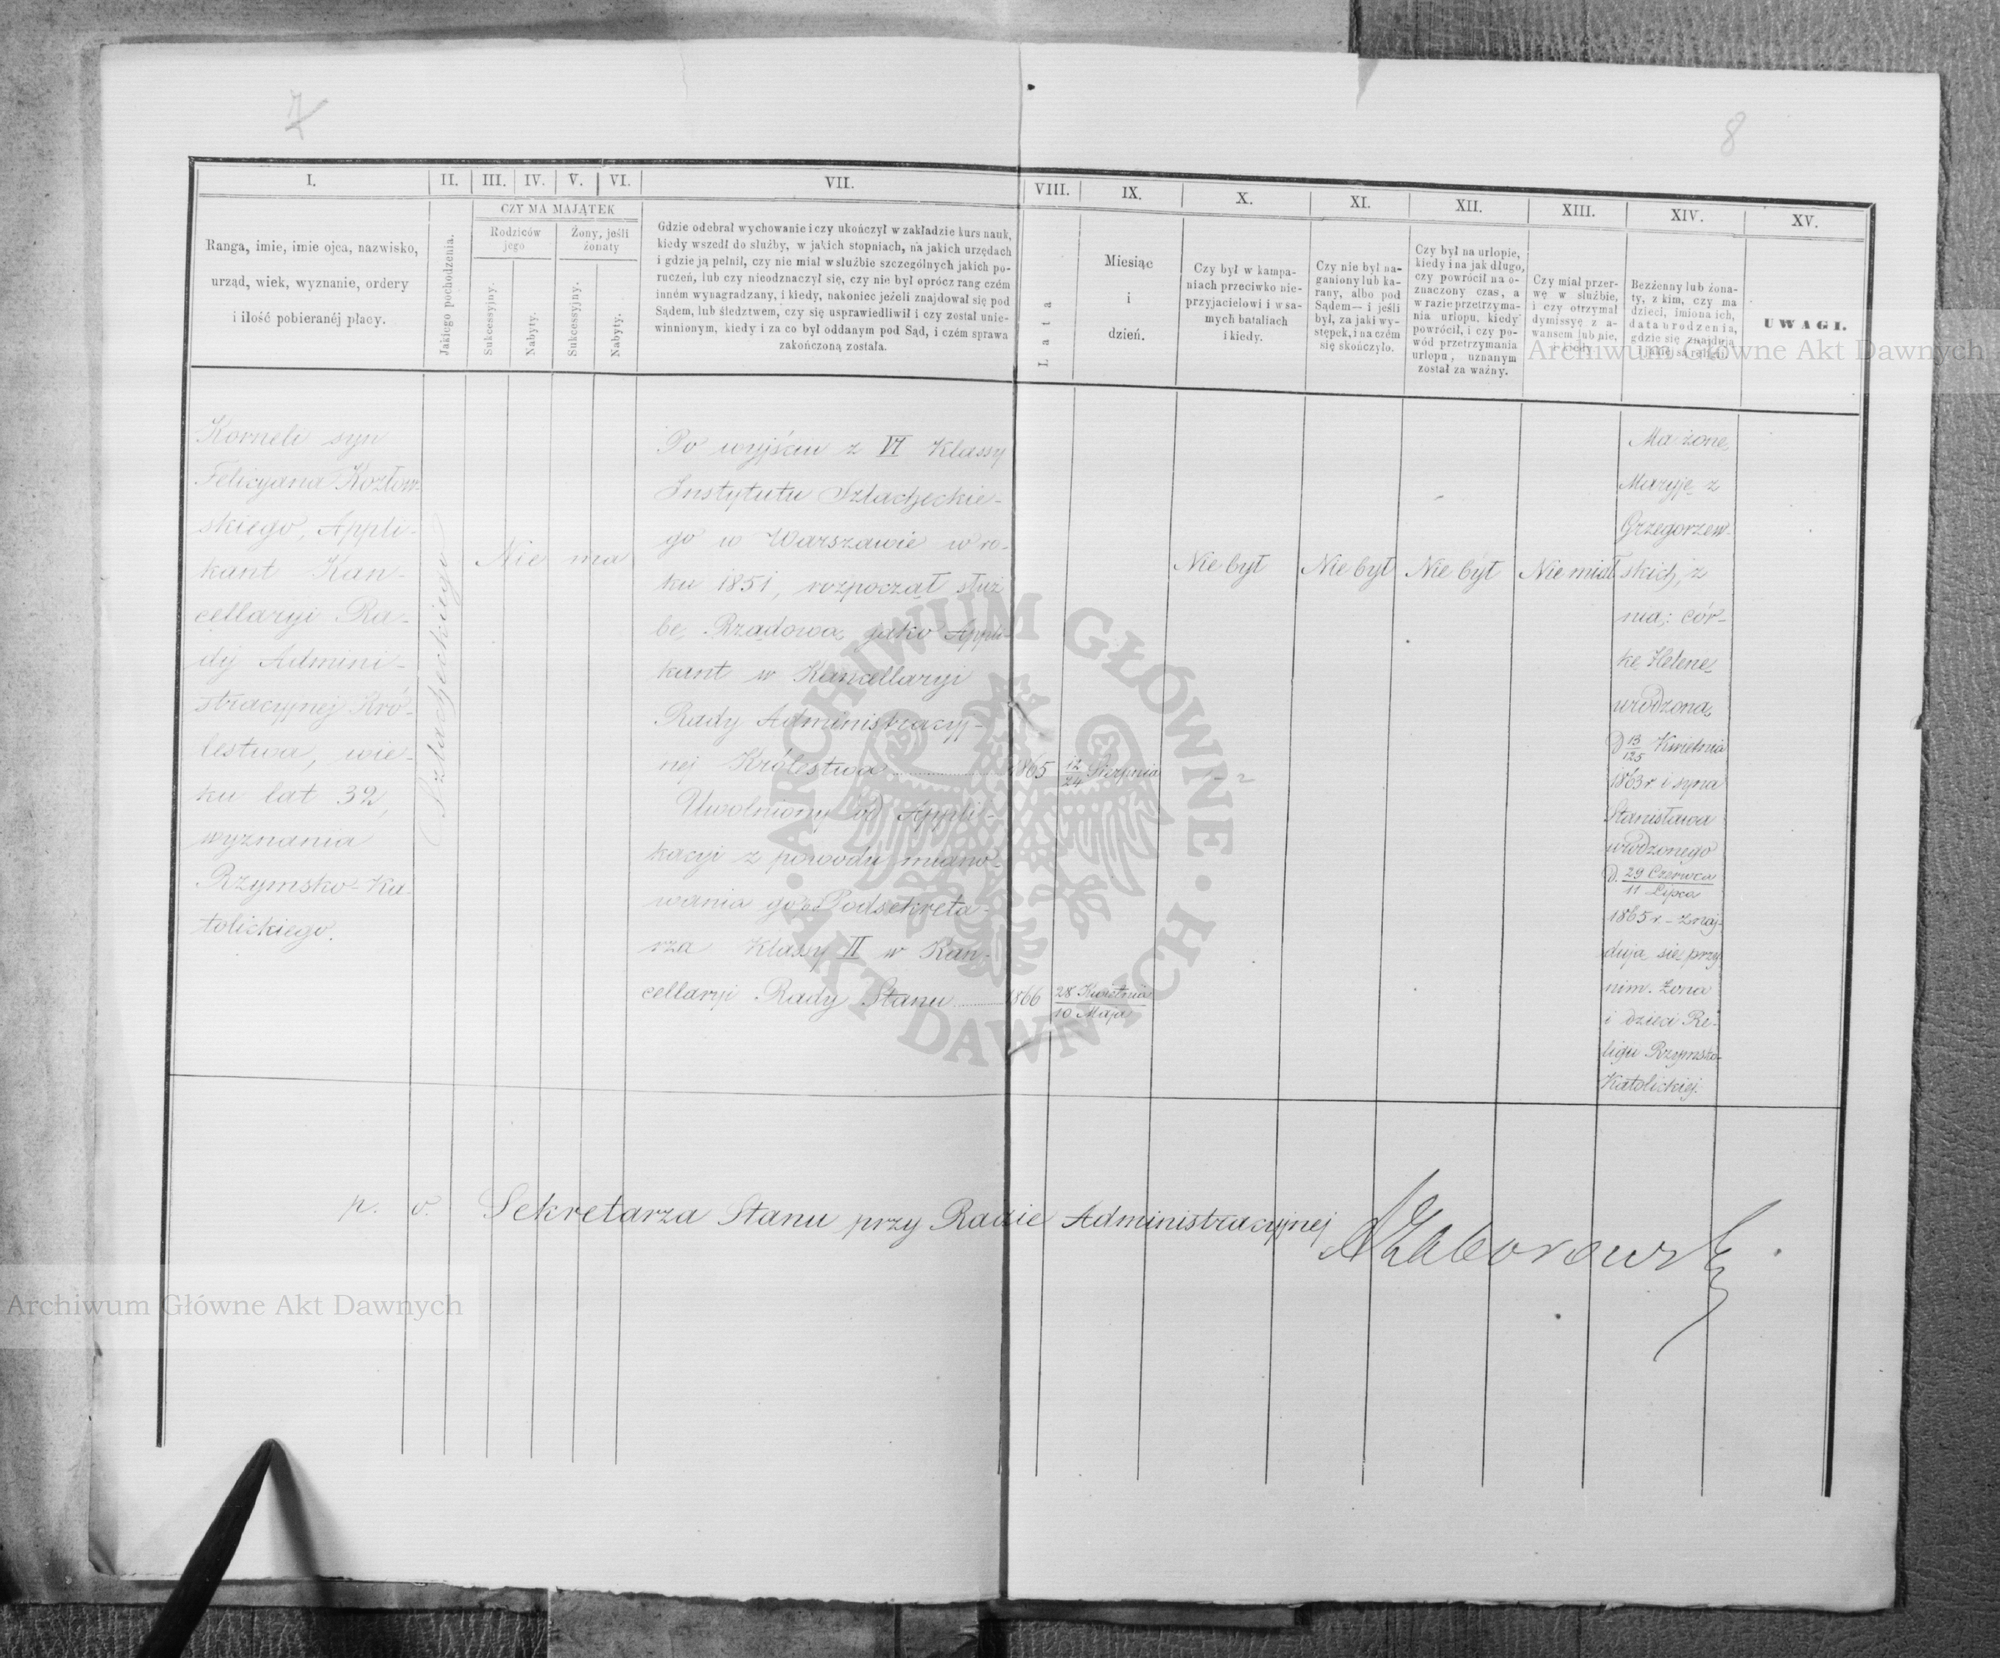 7
8
I.
II.
III.
IV.
V.
VI.
VII.
VIII.
IX.
X.
XI.
XII.
XIII.
XIV.
XV.
Ranga, imie, imie ojca, nazwisko,
urząd, wiek, wyznanie, ordery
i ilość pobieranéj płacy.
Jakiego pochodzenia.
CZY MA MAJĄTEK
Rodziców
jego
Żony, jeśli
żonaty
Sukcessyjny.
Nabyty.
Sukcessyjny.
Nabyty.
Gdzie odebrał wychowanie i czy ukończył w zakładzie kurs nauk,
kiedy wszedł do służby, w jakich stopniach, na jakich urzędach
i gdzie ją pełnił, czy nie miał w służbie szczególnych jakich po-
ruczeń, lub czy nieodznaczył się, czy nie był oprócz rang czém
inném wynagradzany, i kiedy, nakoniec jeżeli znajdował się pod
Sądem, lub śledztwem, czy się usprawiedliwił i czy został unie-
winnionym, kiedy i za co był oddanym pod Sąd, i czém sprawa
zakończoną została.
Lata
Miesiąc
i
dzień.
Czy był w kampa-
niach przeciwko nie-
przyjacielowi i w sa-
mych bataliach
i kiedy.
Czy nie był na-
ganiony lub ka-
rany, albo pod
Sądem — i jeśli
był, za jaki wy-
stępek, i na czém
się skończyło.
Czy był na urlopie,
kiedy i na jak długo,
czy powrócił na o-
znaczony czas, a
w razie przetrzyma-
nia urlopu, kiedy
powrócił, i czy po-
wód przetrzymania
urlopu, uznanym
został za ważny.
Czy miał przer-
wę w służbie,
i czy otrzymał
dymissyę z a-
wansem lub nie,
i kiedy.
Bezżenny lub żona-
ty, z kim, czy ma
dzieci, imiona ich,
data urodzenia,
gdzie się znajdują
i jakiéj są religii.
UWAGI.
Archiwum Główne Akt Dawnych
Korneli syn
Felicyana Kozłow-
skiego, Appli-
kant Kan-
cellaryi Ra-
dy Admini-
stracyjnej Kró-
lestwa, wie-
ku lat 32,
wyznania
Rzymsko-Ka-
tolickiego.
Szlacheckiego
Nie ma
Po wyjściu z VI Klassy
Instytutu Szlacheckie-
go w Warszawie w ro-
ku 1851, rozpoczął służ-
bę Rządową jako Appli-
kant w Kancellaryi
Rady Administracyj-
nej Królestwa 1865 12/24 Sierpnia
Uwolniony od Appli-
kacyi z powodu miano-
wania go Podsekreta-
rza Klassy II w Kan-
cellaryi Rady Stanu 1866 28 Kwietnia/10 Maja
Nie był
Nie był
Nie był
Nie miał
Ma żonę
Maryję z
Grzegorzew-
skich, z
nią: cór-
kę Helenę
urodzoną
D 13/125 Kwietnia
1863 r i syna
Stanisława
urodzonego
D. 29 Czerwca/11 Lipca
1865 r - Znaj-
dują się przy
nim. Żona
i dzieci Re-
ligii Rzymsko-
Katolickiej.
ARCHIWUM GŁÓWNE
AKT DAWNYCH
p. o. Sekretarza Stanu przy Radzie Administracyjnej
AZaborowski
Archiwum Główne Akt Dawnych